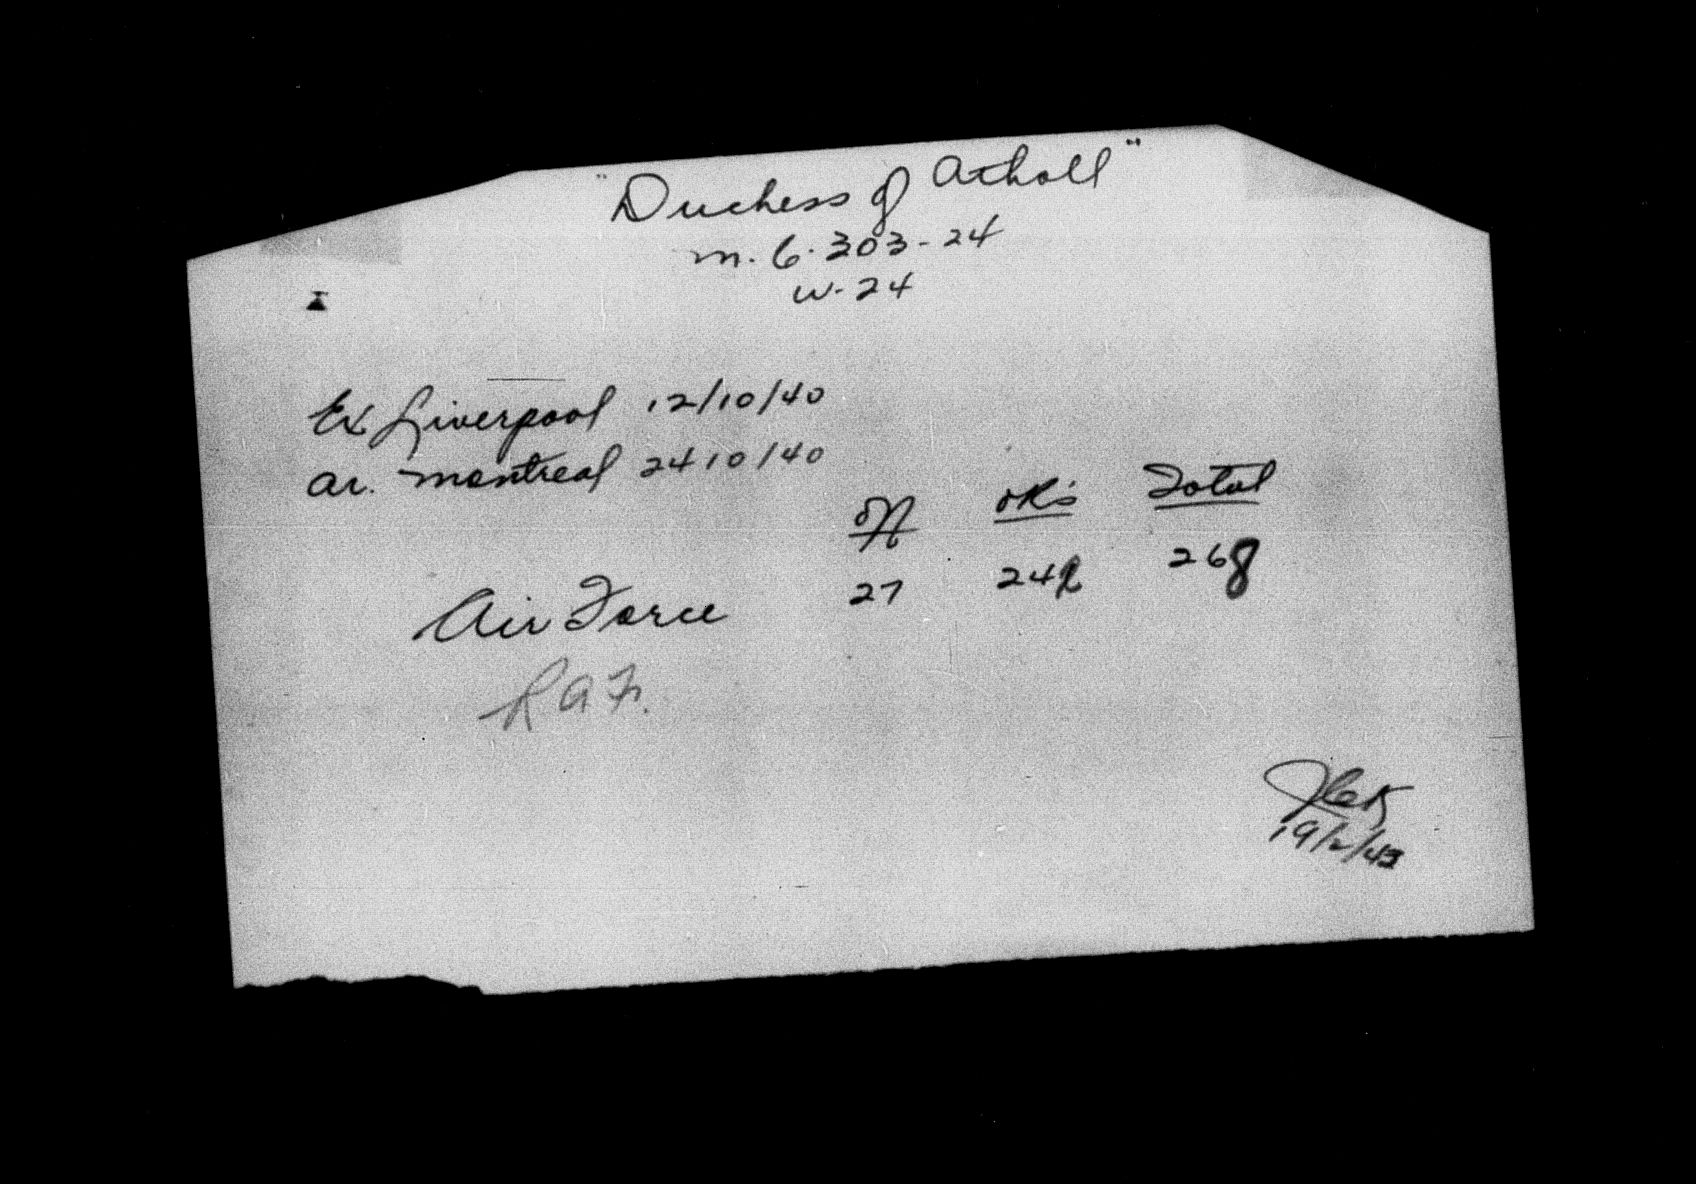 "Duchess of Atholl"
M. 6-303-24
W-24
Ex Liverpool 12/10/40
Ar. Montreal 24 10/40
Off OR's Total
Air Force 27 241 268
RAF.
19/2/43